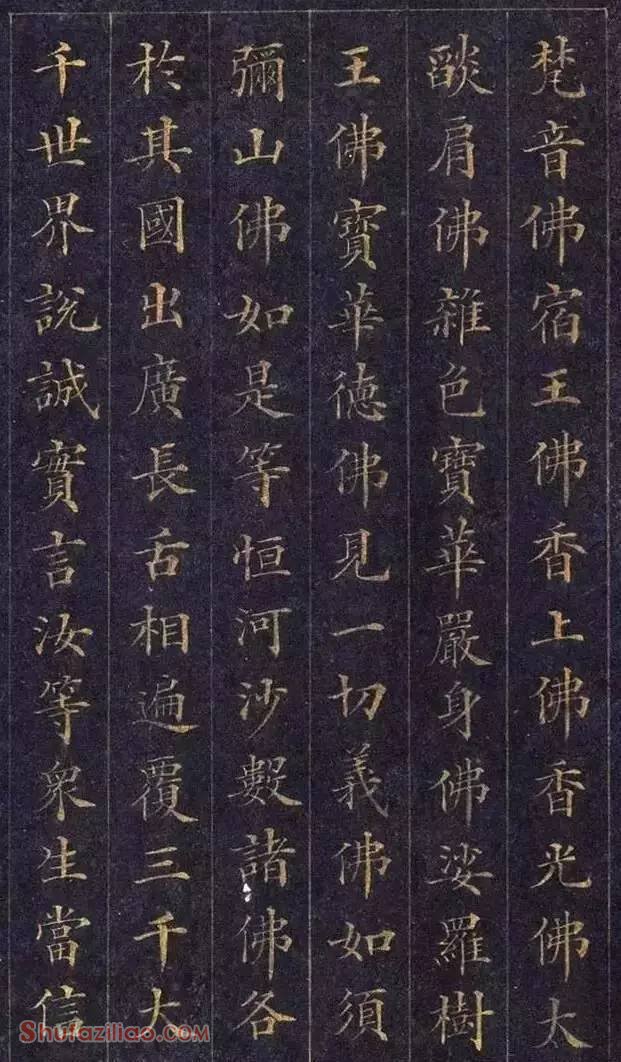 梵音佛宿王佛香上佛香光佛大
燄肩佛雜色寶華嚴身佛娑羅樹
王佛寶華德佛見一切義佛如須
彌山佛如是等恒河沙數諸佛各
於其國出廣長舌相遍覆三千大
千世界說誠實言汝等眾生當信
Shufaziliao.com